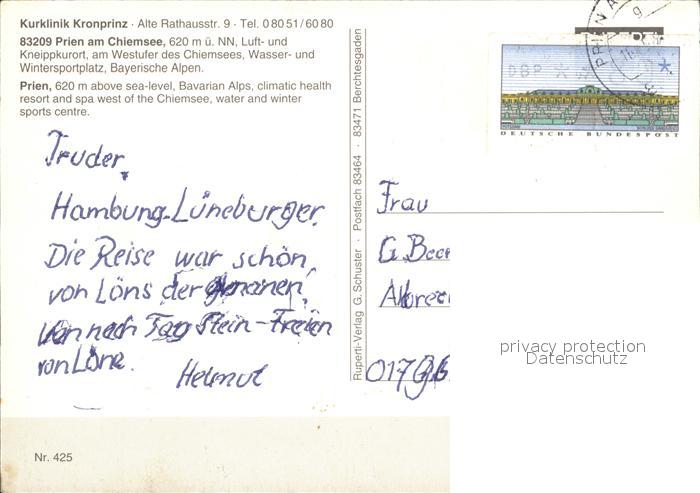 Kurklinik Kronprinz · Alte Rathausstr. 9 · Tel. 0 80 51 / 60 80
83209 Prien am Chiemsee, 620 m ü. NN, Luft- und
Kneippkurort, am Westufer des Chiemsees, Wasser- und
Wintersportplatz, Bayerische Alpen.
Prien, 620 m above sea-level, Bavarian Alps, climatic health
resort and spa west of the Chiemsee, water and winter
sports centre.
Truder,
Hamburg-Lüneburger.
Die Reise war schön,
von Löns der
nach Tag Stein-Freien
von Löns.
Helmut
Nr. 425
Ruperti-Verlag G. Schuster · Postfach 83464 · 83471 Berchtesgaden
PRIEN A
DBP
DEUTSCHE BUNDESPOST
Frau
G. Beer
017
privacy protection
Datenschutz